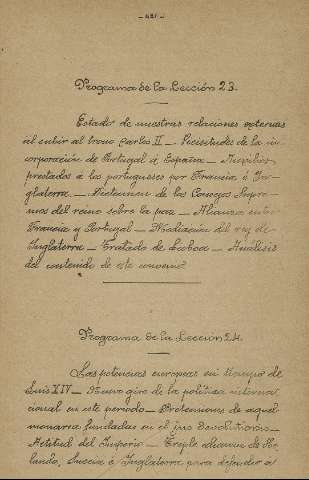 - 421 -
Programa de la Lección 23.
Estado de nuestras relaciones externas
al subir al trono Carlos II _ Vicisitudes de la in
corporación de Portugal á España _ Auxilios
prestados a los portugueses por Francia é In-
glaterra _ Dictamen de los Consejos Supre-
mos del reino sobre la paz _ Alianza entre
Francia y Portugal _ Mediación del rey de
Inglaterra _ Tratado de Lisboa _ Análisis
del contenido de este convenio
Programa de la Lección 24.
Las potencias europeas en tiempo de
Luis XIV _ Nuevo giro de la política interna
cional en este periodo _ Pretensiones de aquel
monarca fundadas en el jus devolutionis _
Actitud del Imperio _ Triple alianza de Ho-
landa, Suecia é Inglaterra para defender á